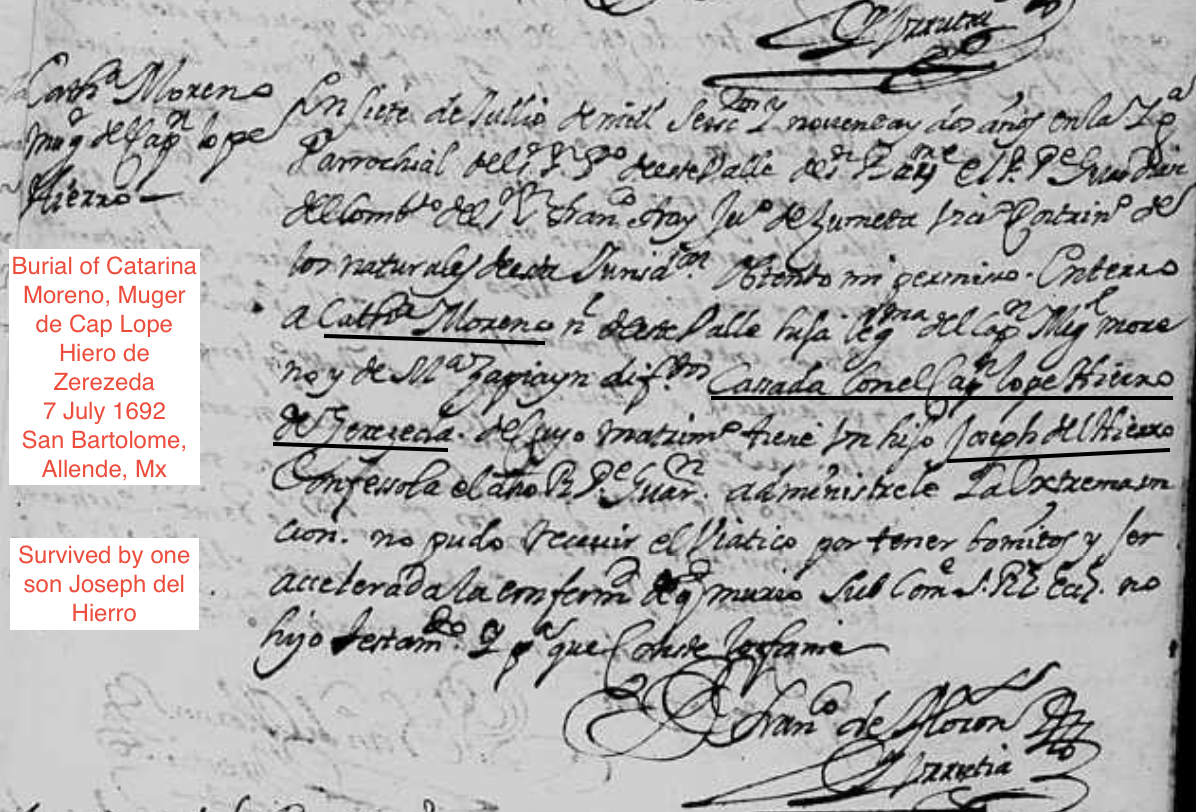 Urrutia
Cathª Moreno
mugº del Capn lope
Hierro
En siete de Jullio de mill seiscºs y noventa y dos años en la Ygª
Parrochial del Sr Sn Bme deste Valle de Sn Bme el R. Pe Guardian
del Combto del Sr Sn Franco fray Juº de Zumeta Cura Doctrinº de
los naturales desta Jurisdon Obtento mi permiso. Enterro
a Cathª Moreno nl deste Valle hija legma del Capn Migl more
no y de Mª Zapiayn difos Casada Con el Capn lope Hierro
de Zerezeda. de Cuyo matrimº tiene un hijo Joseph del Hierro
Confessola el dho R. Pe Guarn. administrele La Extremaun
cion. no pudo reccuir el Viatico por tener bomitos y ser
accelerada la enfermd de q murio Sub Come S. R. Ecl. no
hizo testamto. Y pª que Conste lo firmé
Franco de
Urrutia
Burial of Catarina
Moreno, Muger
de Cap Lope
Hiero de
Zerezeda
7 July 1692
San Bartolome,
Allende, Mx
Survived by one
son Joseph del
Hierro